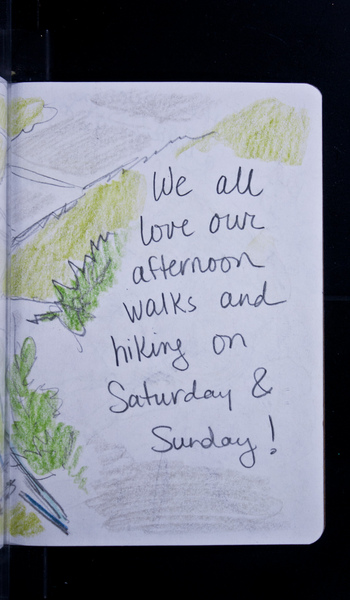 We all
love our
afternoon
walks and
hiking on
Saturday &
Sunday!